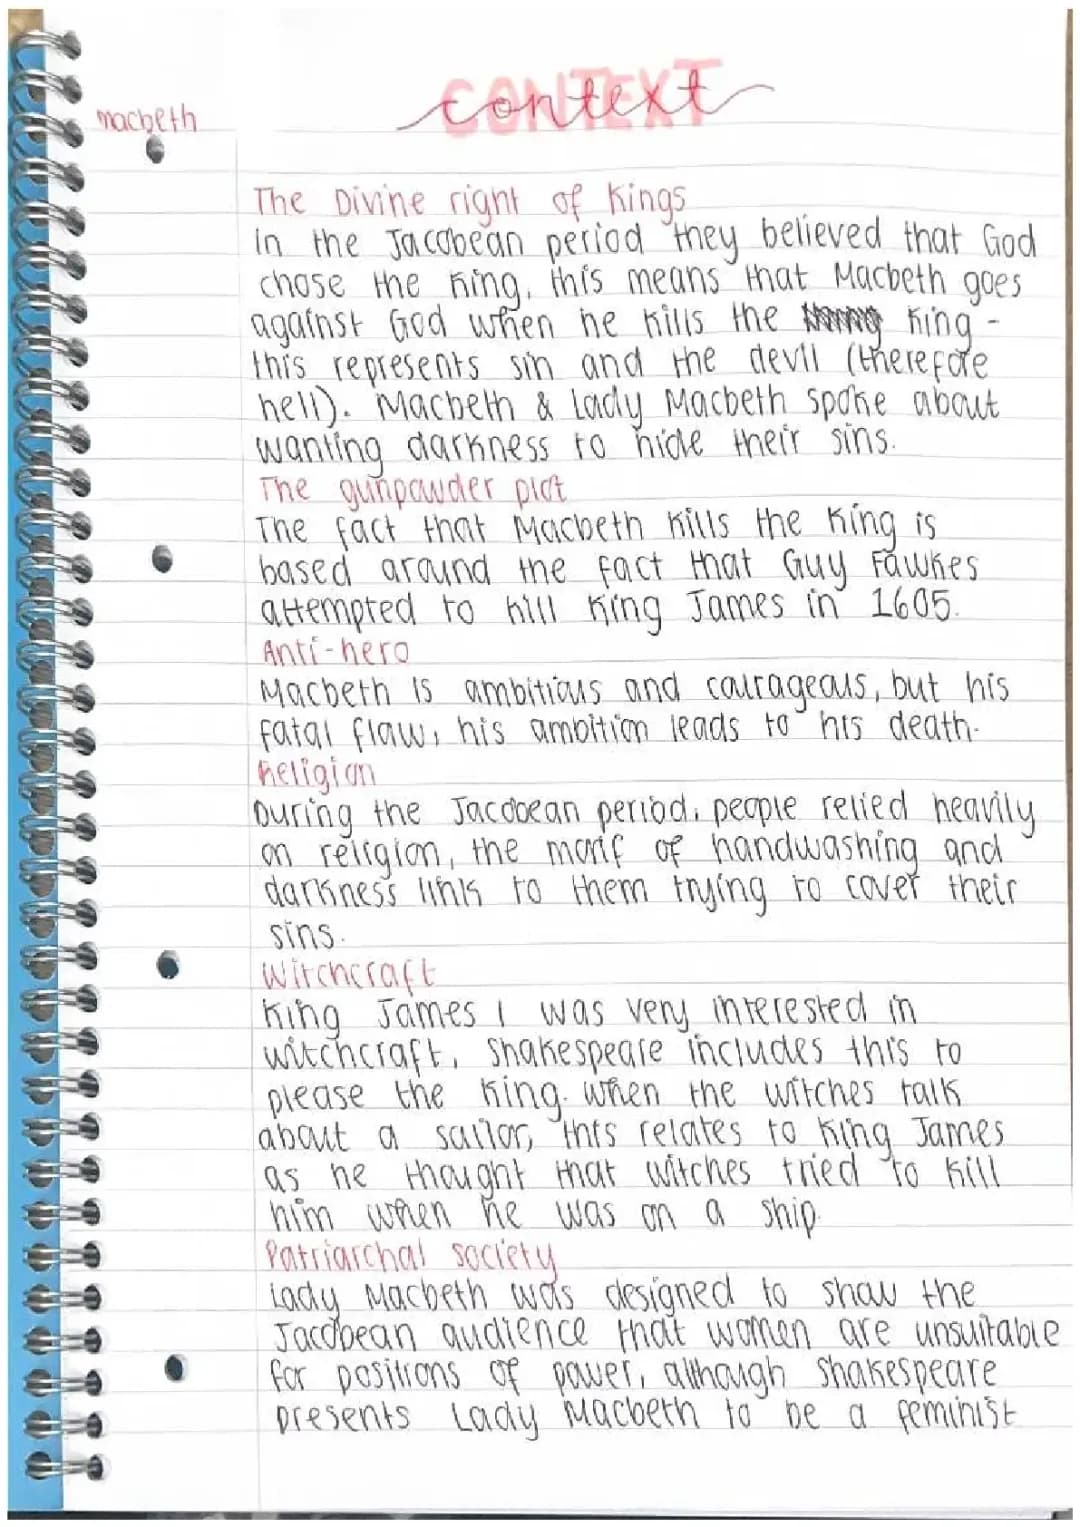 CONTEXT
context
macbeth
The Divine right of Kings
In the Jacobean period they believed that God
chose the King, this means that Macbeth goes
against God when he kills the King -
this represents sin and the devil (therefore
hell). Macbeth & Lady Macbeth spoke about
wanting darkness to hide their sins.
The gunpowder plot
The fact that Macbeth kills the King is
based around the fact that Guy Fawkes
attempted to kill King James in 1605.
Anti-hero
Macbeth is ambitious and courageous, but his
fatal flaw, his ambition leads to his death.
Religion
During the Jacobean period, people relied heavily
on religion, the motif of handwashing and
darkness link to them trying to cover their
sins.
Witchcraft
King James I was very interested in
witchcraft, Shakespeare includes this to
please the King. When the witches talk
about a sailor, this relates to King James
as he thought that witches tried to kill
him when he was on a ship.
Patriarchal society
Lady Macbeth was designed to show the
Jacobean audience that women are unsuitable
for positions of power, although Shakespeare
presents Lady Macbeth to be a feminist